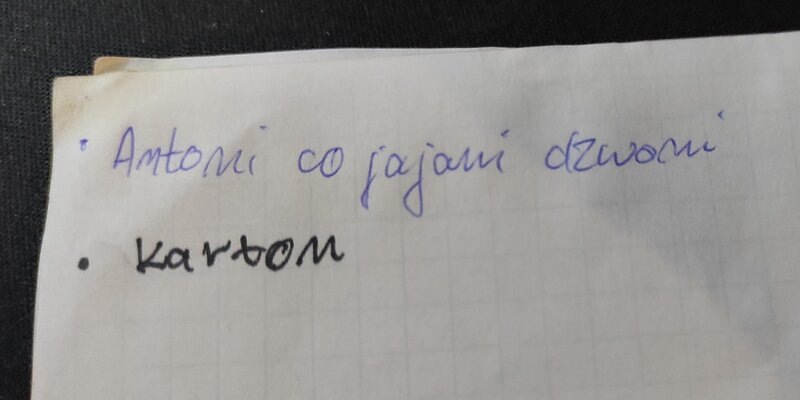 • Antoni co jajani dzwoni
• karton